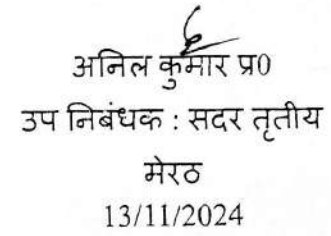 अनिल कुमार प्र0
उप निबंधक : सदर तृतीय
मेरठ
13/11/2024